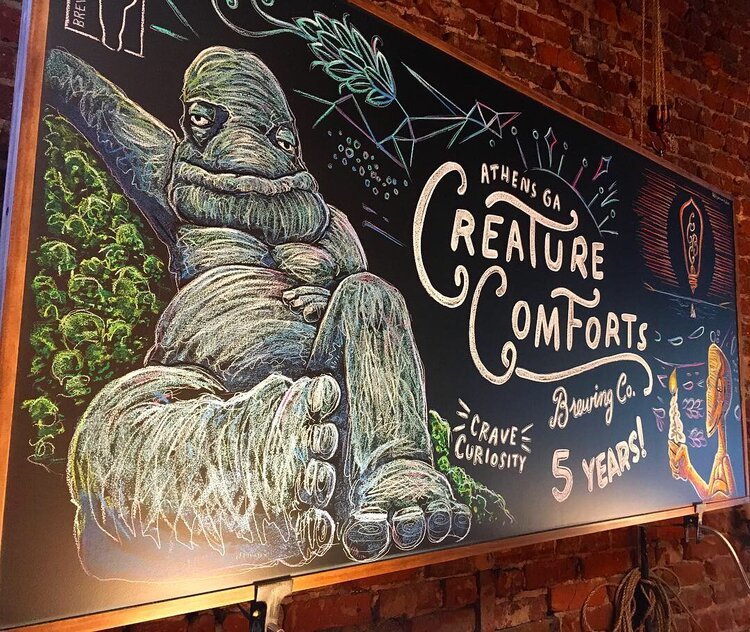 BREW
ATHENS GA
CREATURE
COMFORTS
Brewing Co.
CRAVE
CURIOSITY
5 YEARS!